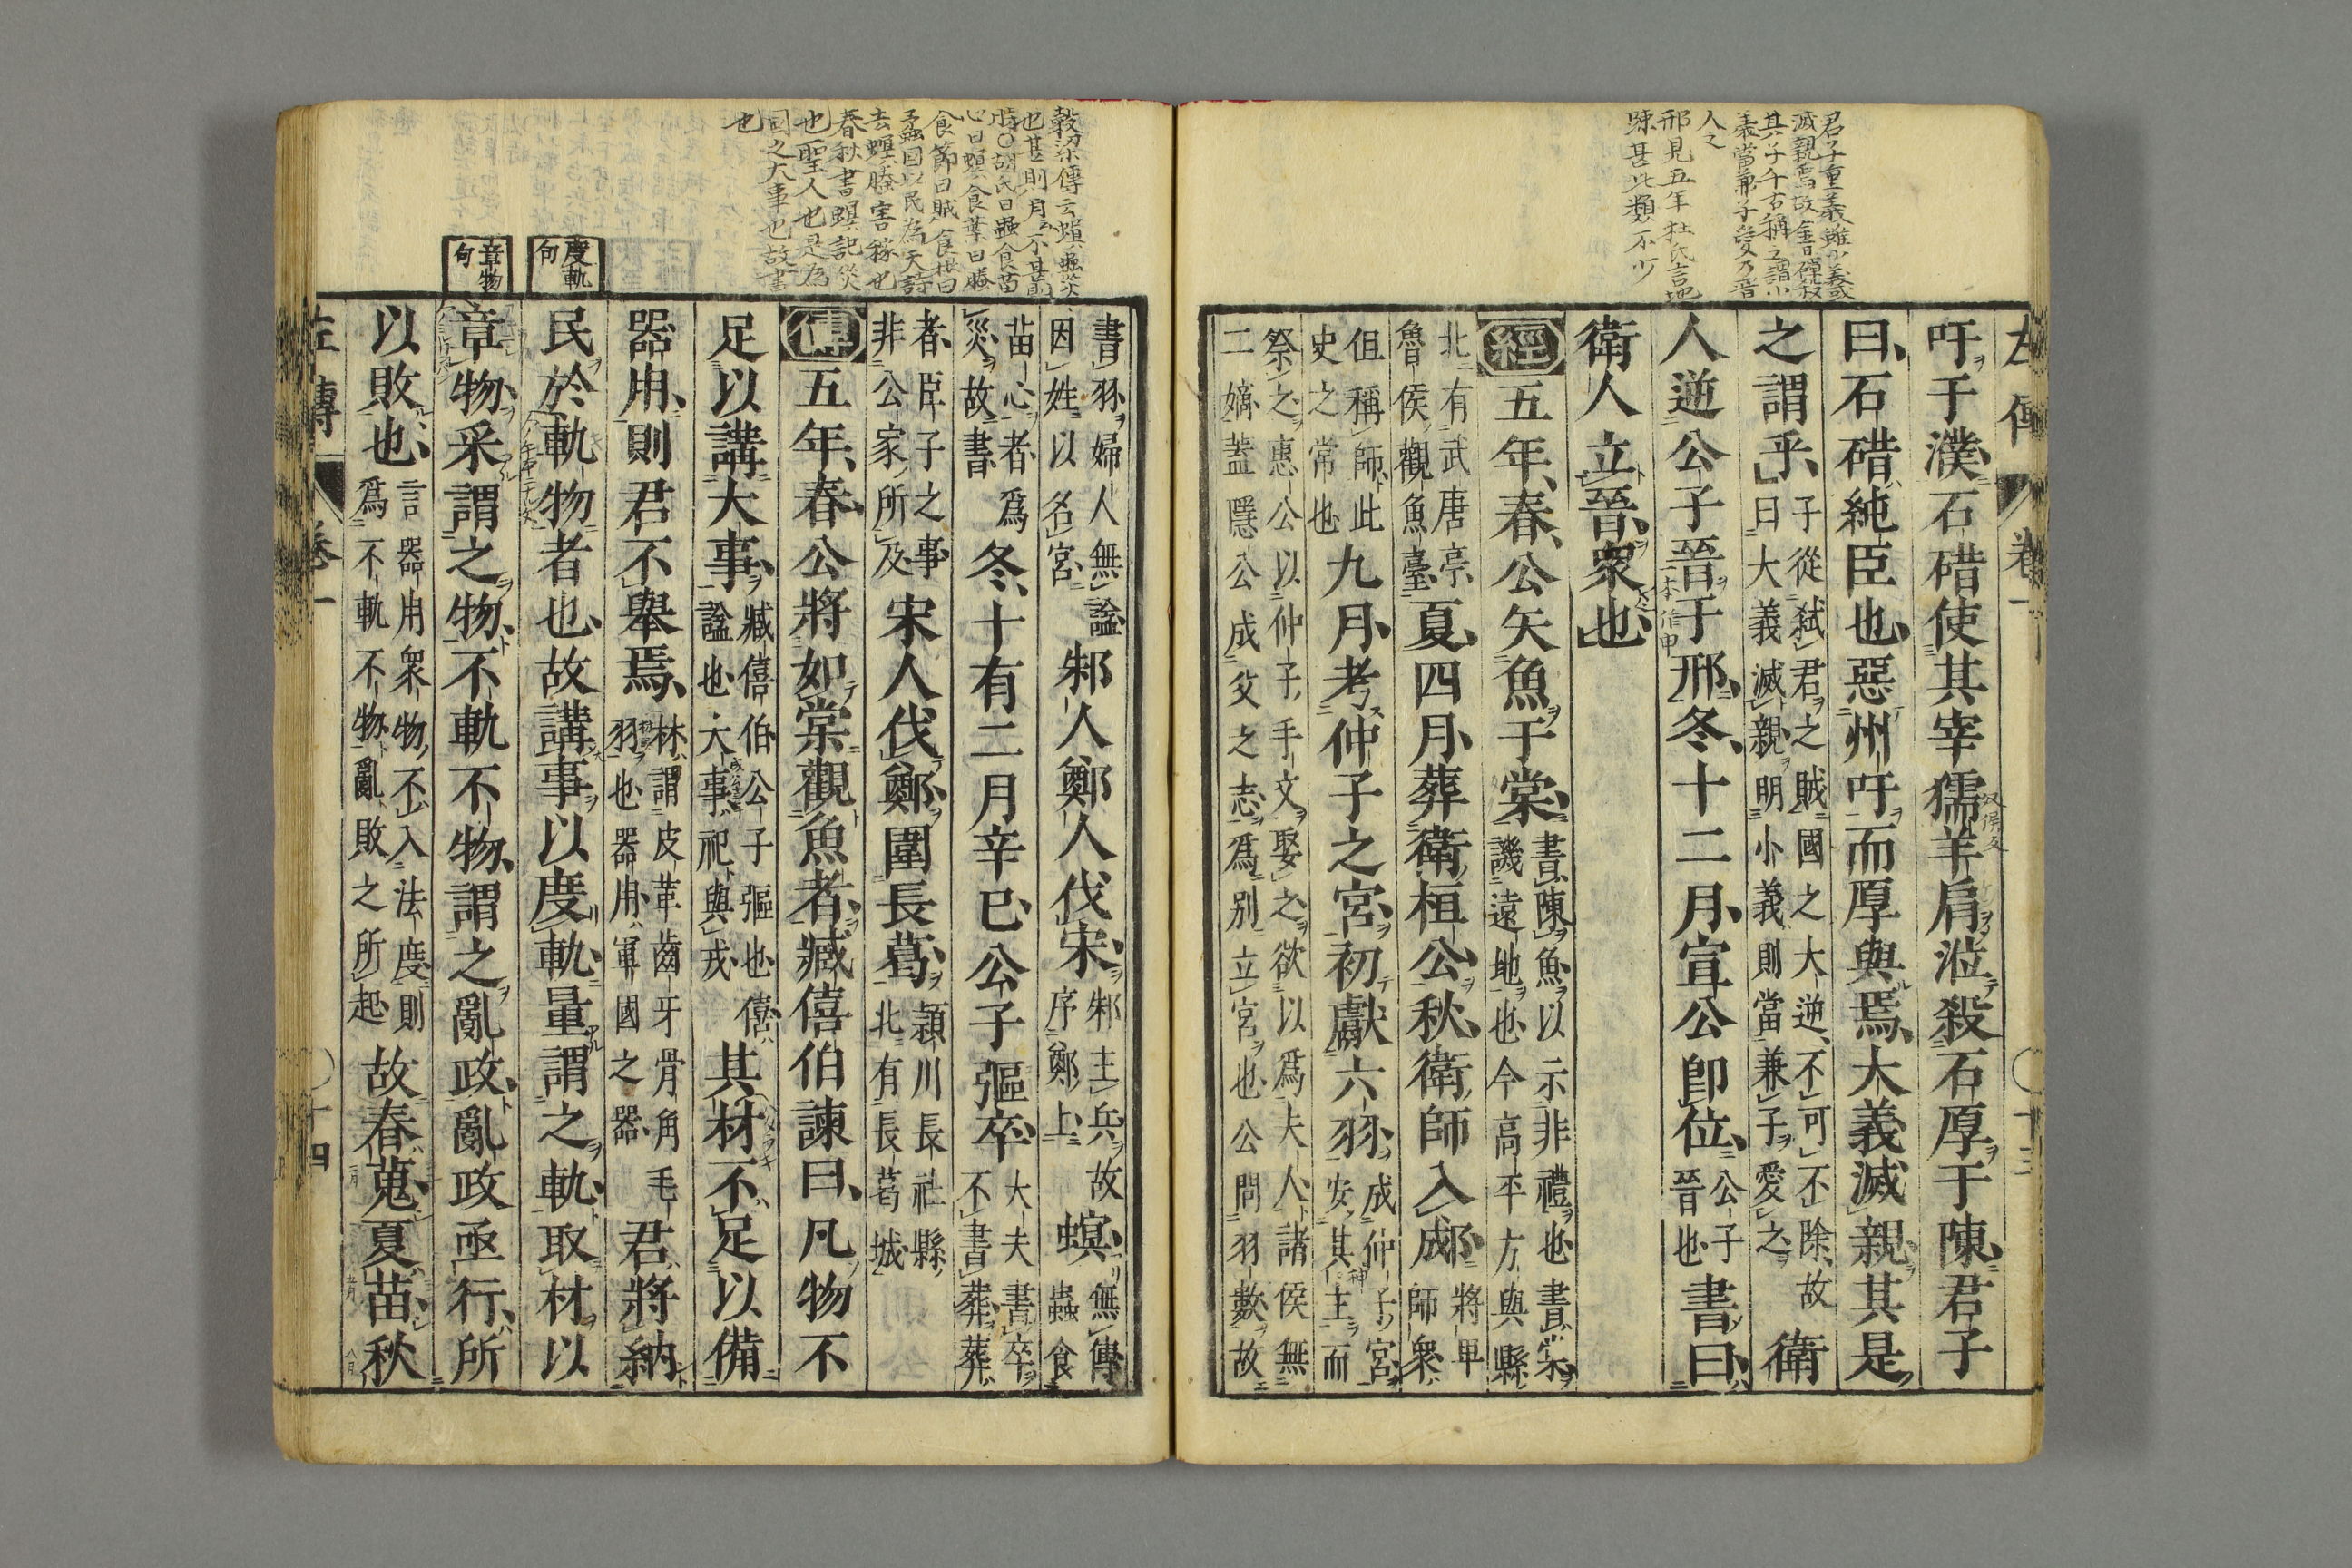 君子重義雖小義或
滅親焉故全晉殖叔
其子千古稱之謂小
義當兼子愛乃晉
人之
邢見五年杜氏言地
疎甚此類不少
左傳 卷一 十三
吁于濮石碏使其宰獳羊肩涖殺石厚于陳君子
曰石碏純臣也惡州吁而厚與焉大義滅親其是
之謂乎子從弑君之賊國之大逆不可不除故
曰大義滅親明小義則當兼子愛之衛
人逆公子晉于邢冬十二月宣公即位公子
晉也書曰
衛人立晉衆也
經五年春公矢魚于棠書陳魚以示非禮也書棠
譏遠地也今高平方與縣
北有武唐亭
魯侯觀魚臺夏四月葬衛桓公秋衛師入郕將卑
師衆
但稱師此
史之常也九月考仲子之宮初獻六羽成仲子宮
安其主而
祭之惠公以仲子手文娶之欲以爲夫人諸侯無
二嫡蓋隱公成父之志爲別立宮也公問羽數故
穀梁傳云螟蟲災
也甚則月不甚則
時〇胡氏曰蟲食苗
心曰螟食葉曰螣
食節曰賊食根曰
蟊国以民為天詩
去螟螣害稼也
春秋書螟記災
也聖人也是為
国之大事也故書
也
度軌句
章物句
書羽婦人無謚
因姓以名宮邾人鄭人伐宋邾主兵故
序鄭上螟無傳
蟲食
苗心者爲
災故書冬十有二月辛巳公子彄卒大夫書卒
不書葬葬
者臣子之事
非公家所及宋人伐鄭圍長葛潁川長社縣
北有長葛城
傳五年春公將如棠觀魚者臧僖伯諫曰凡物不
足以講大事臧僖伯公子彄也僖
謚也大事祀與戎其材不足以備
器用則君不舉焉材謂皮革齒牙骨角毛
羽也器用軍國之器君將納
民於軌物者也故講事以度軌量謂之軌取材以
章物采謂之物不軌不物謂之亂政亂政亟行所
以敗也言器用衆物不入法度則
爲不軌不物亂敗之所起故春蒐夏苗秋
左傳 卷一 十四